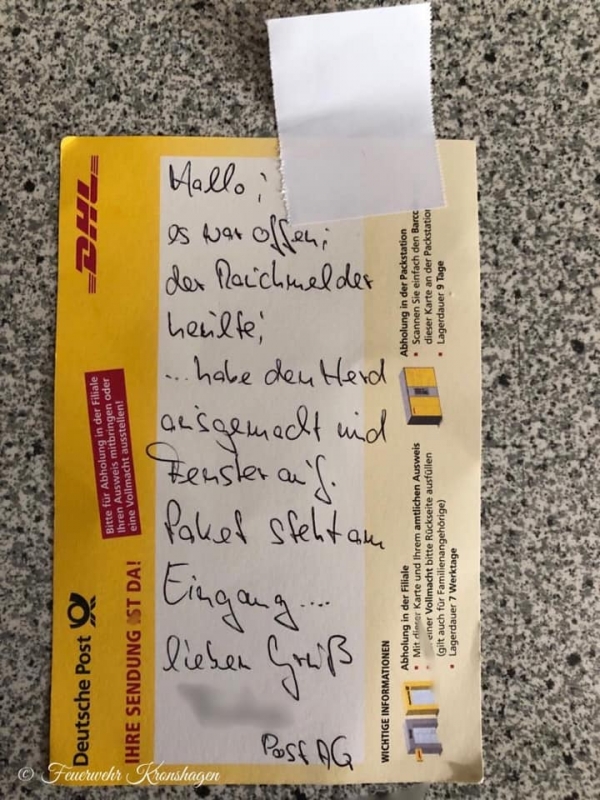 Hallo;
es war offen;
der Rauchmelder
heulte;
...habe den Herd
ausgemacht und
Fenster auf.
Paket steht am
Eingang....
lieben Gruß
Post AG
DHL
Deutsche Post
IHRE SENDUNG IST DA!
Bitte für Abholung in der Filiale
Ihren Ausweis mitbringen oder
eine Vollmacht ausstellen!
WICHTIGE INFORMATIONEN
Abholung in der Filiale
• Mit dieser Karte und Ihrem amtlichen Ausweis
• einer Vollmacht bitte Rückseite ausfüllen
(gilt auch für Familienangehörige)
• Lagerdauer 7 Werktage
Abholung in der Packstation
• Scannen Sie einfach den Barco
dieser Karte an der Packstation
• Lagerdauer 9 Tage
© Feuerwehr Kronshagen